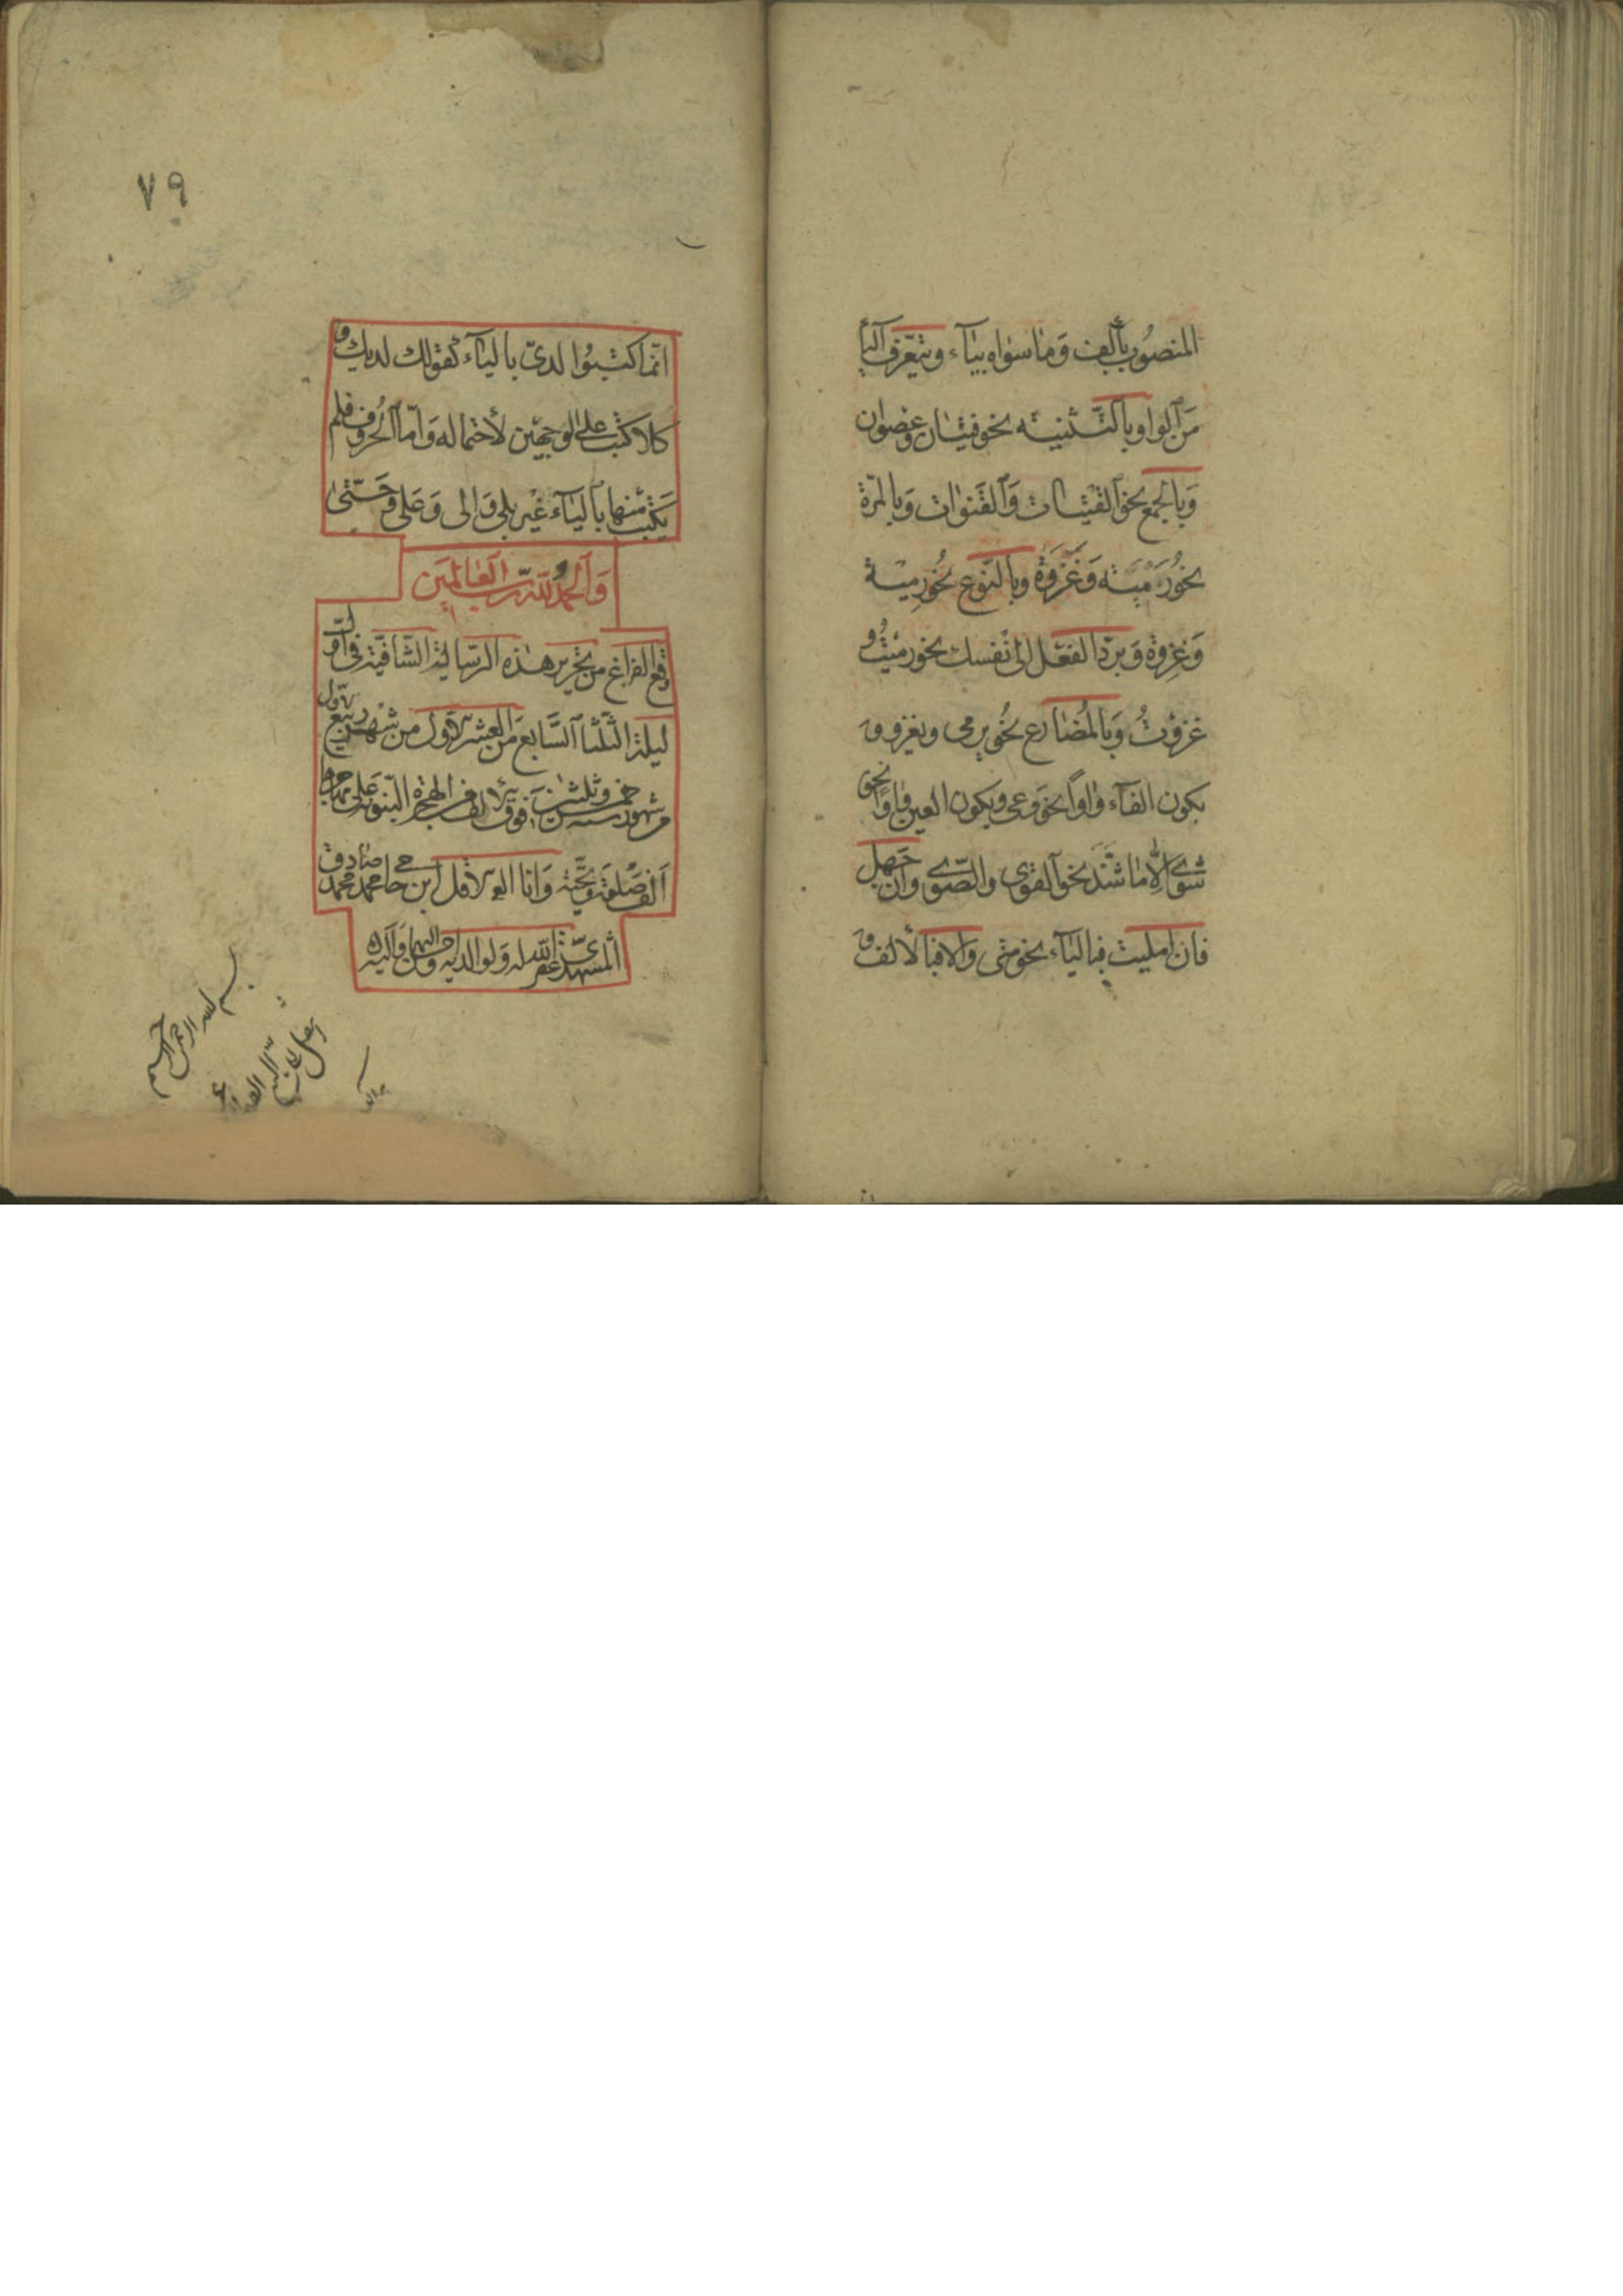 المنصُوب بألِف وَمَا سوٰاه بيٰاء ويتعرّف اليٰأ
مَن الواو بالتَّثنيته نحو فتيٰان وعَصوان
وَبالجمع نحو الفتيٰات وَالقنوٰات وَبالمرّة
نحُو رَميَته وَغزوَة وبالنّوع نحُو رِميْة
وَغِزوة وَبردّ الفعْل الىٰ نفسك نحو رميْتُ و
غزوْتُ وَبالمُضٰارع نحُو يرمى ويغزو و
بكون الفآء وٰاواً نحو وَعى وبكون العين وٰاواً نحو
شوى الّا مٰا شَذَ نحو القوى والصّوى وان جَهل
فان امليت فباليٰآء نحو متى وَالا فبالألف و
٧٩
انّما كتبُوا لدىّ باليٰآء كقولك لديك و
كلا كتب على الوجهيْن لأحتماله وَامّا الحروف فلم
يكتب منها باليٰآء غيْر بلى وَالى وَعلى وَحتّىٰ
وَالحمدُ للّه ربّ العٰالمَين
وقع الفراغ من تحرير هٰذه الرّسالة الشٰافية فى اوّل
ليلة الثلثا السّابع من العشر الاول من شهر ربيع الاول
من شهور سنه خمس وثلثين فوق الالف من الهجرة النبوية على مهاجرها
الف صلوة وتحيّة وَانا الاقل ابن حاجى محمد محمد صٰادق
المشهدىّ غفر اللّه له وَلوالديه واحسن اليهما واليه
بسم الله الرحمن الرحيم